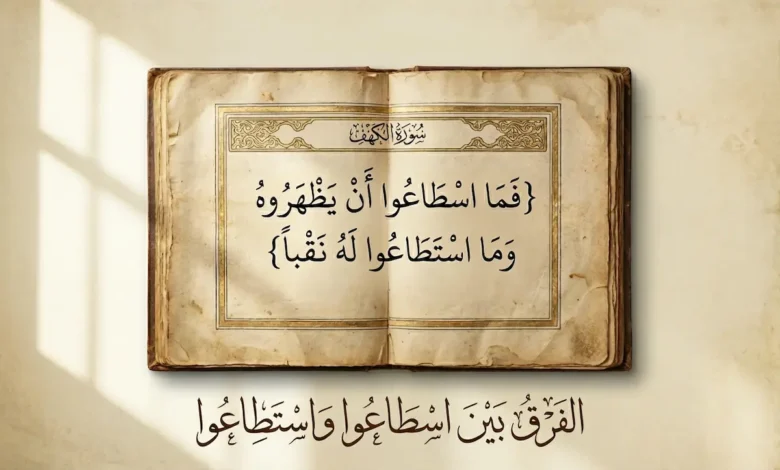 سُورَةُ الْكَهْفِ
{فَمَا اسْطَاعُوا أَنْ يَظْهَرُوهُ
وَمَا اسْتَطَاعُوا لَهُ نَقْباً}
الفَرْقُ بَيْنَ اسْطَاعُوا وَاسْتَطِاعُوا